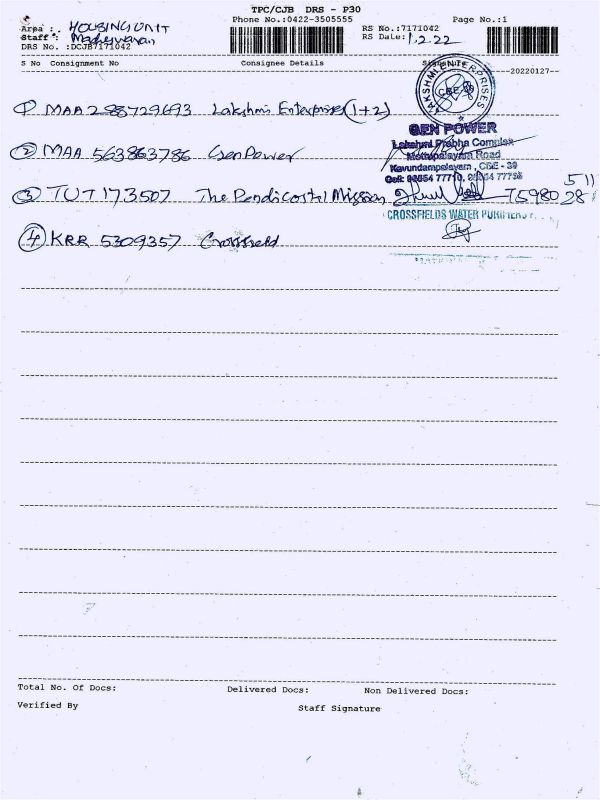 TPC/CJB DRS - P30
Phone No.:0422-3505555 Page No.:1
Area : HOUSING UNIT
RS No.:7171042
Staff :
RS Date: 1.2.22
DRS No. :DCJB7171042
S No Consignment No Consignee Details Signature
--20220127--
① MAA 298729693 Lakshmi Enterprises (1+2)
LAKSHMI ENTERPRISES
CBE-30
GEN POWER
Lakshmi Prabha Complex
② MAA 563863786 Gen Power
Mettupalayam Road
Kavundampalayam, CBE - 30
③ TUT 173507 The Pendicostal Mission 75980 28 511
CROSSFIELDS WATER PURIFIERS
④ KRR 5309357 Crossfield
Total No. Of Docs: Delivered Docs: Non Delivered Docs:
Verified By Staff Signature